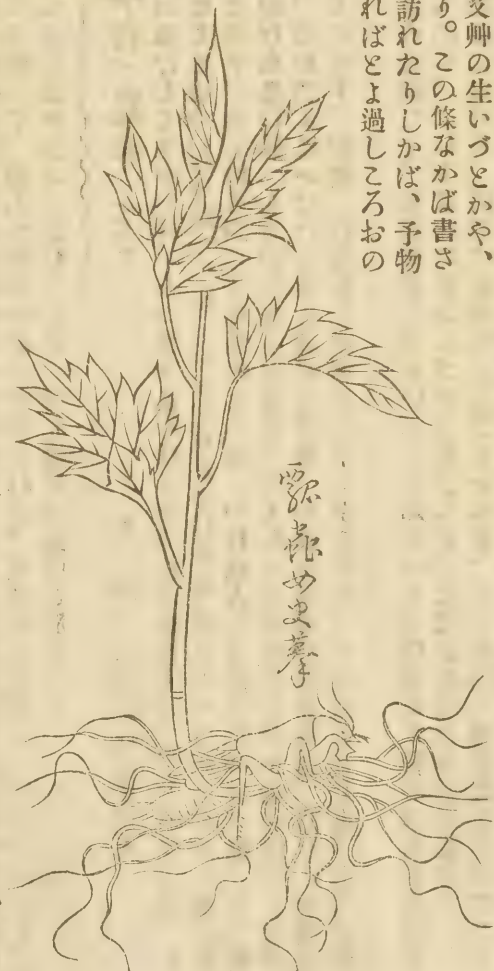 艸の生いづとかや、
り。この條なかば書さ
訪れたりしかば、予物
ればとよ過しころおの
女史摹